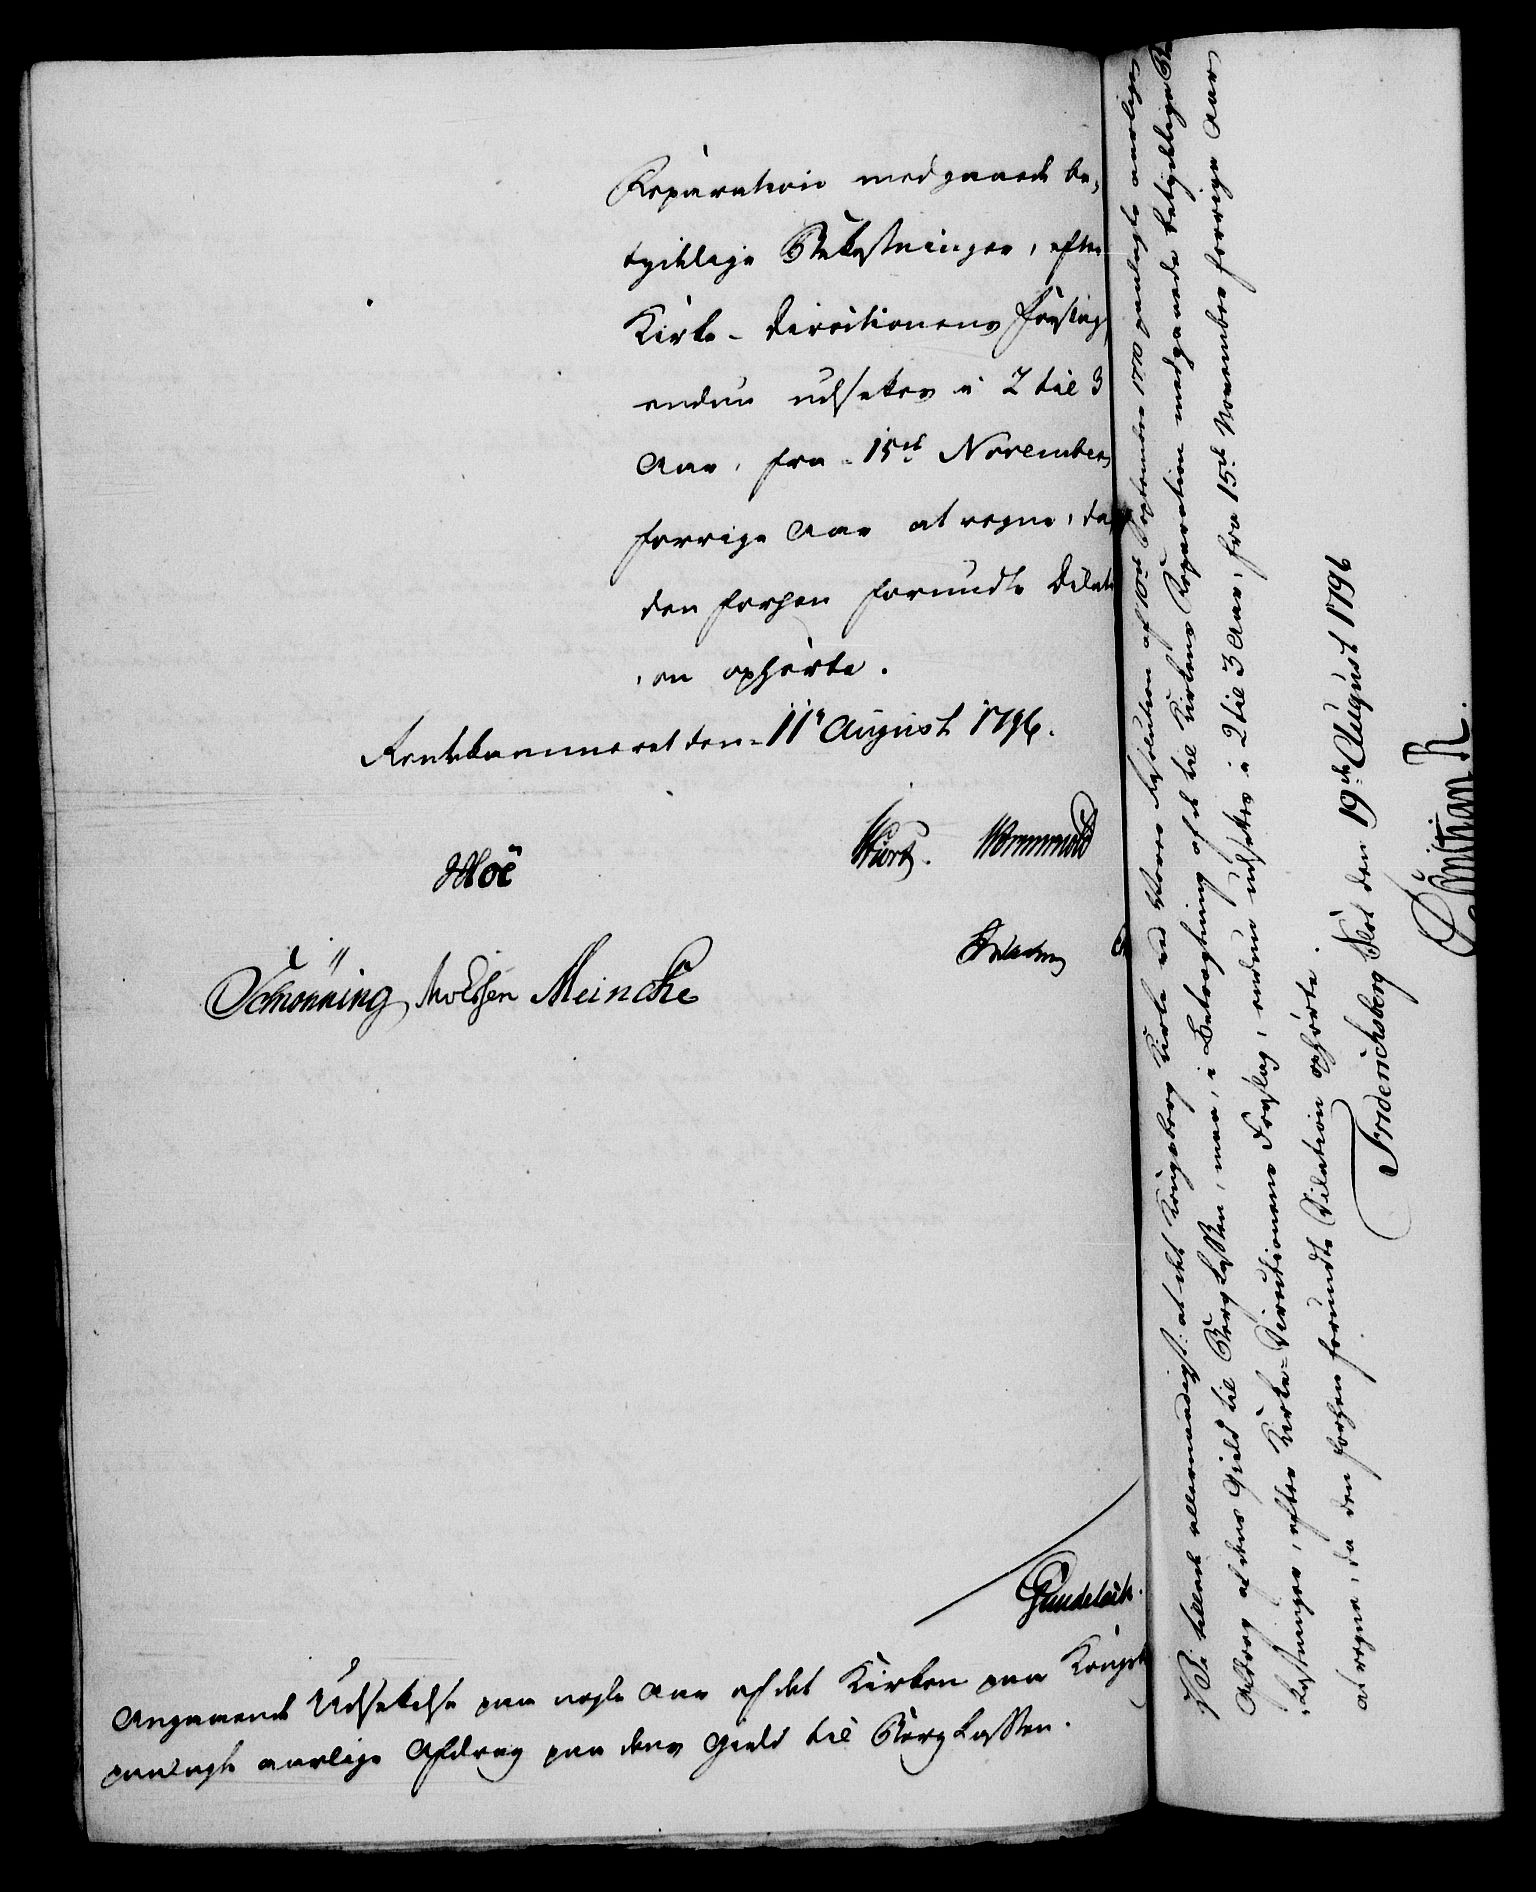 Reparation medgaaede be-
tydelige Bekostninger, efter
Kirke-Directionens Forslag,
endnu udsættes i 2 til 3
Aar, fra 15de November
forrige Aar at regne, da
den forhen forundte Dilati
on ophørte.
Rentekammeret den 11te August 1796.
Hoë Wormskiold
Schønning Meincke
Gundelach.
Angaaende Udsættelse paa nogle Aar af det Kirken paa Kongsb
paalagte aarlige Afdrag paa dens Gield til BergCassen.
Vi tillade allernaadigst: at det Kongsberg Kirke ved Vores Resolution af 10de September 1770 paalagte aarlige
Afdrag af dens Gield til BergCassen, maa, i Betragtning af de til Kirkens Reparation medgaaede betydelige Be
kostninger, efter Kirke-Directionens Forslag, endnu udsættes i 2 til 3 Aar, fra 15de November forrige Aar
at regne, da den forhen forundte Dilation ophørte.
Friderichsberg Slot den 19de August 1796
Christian R.